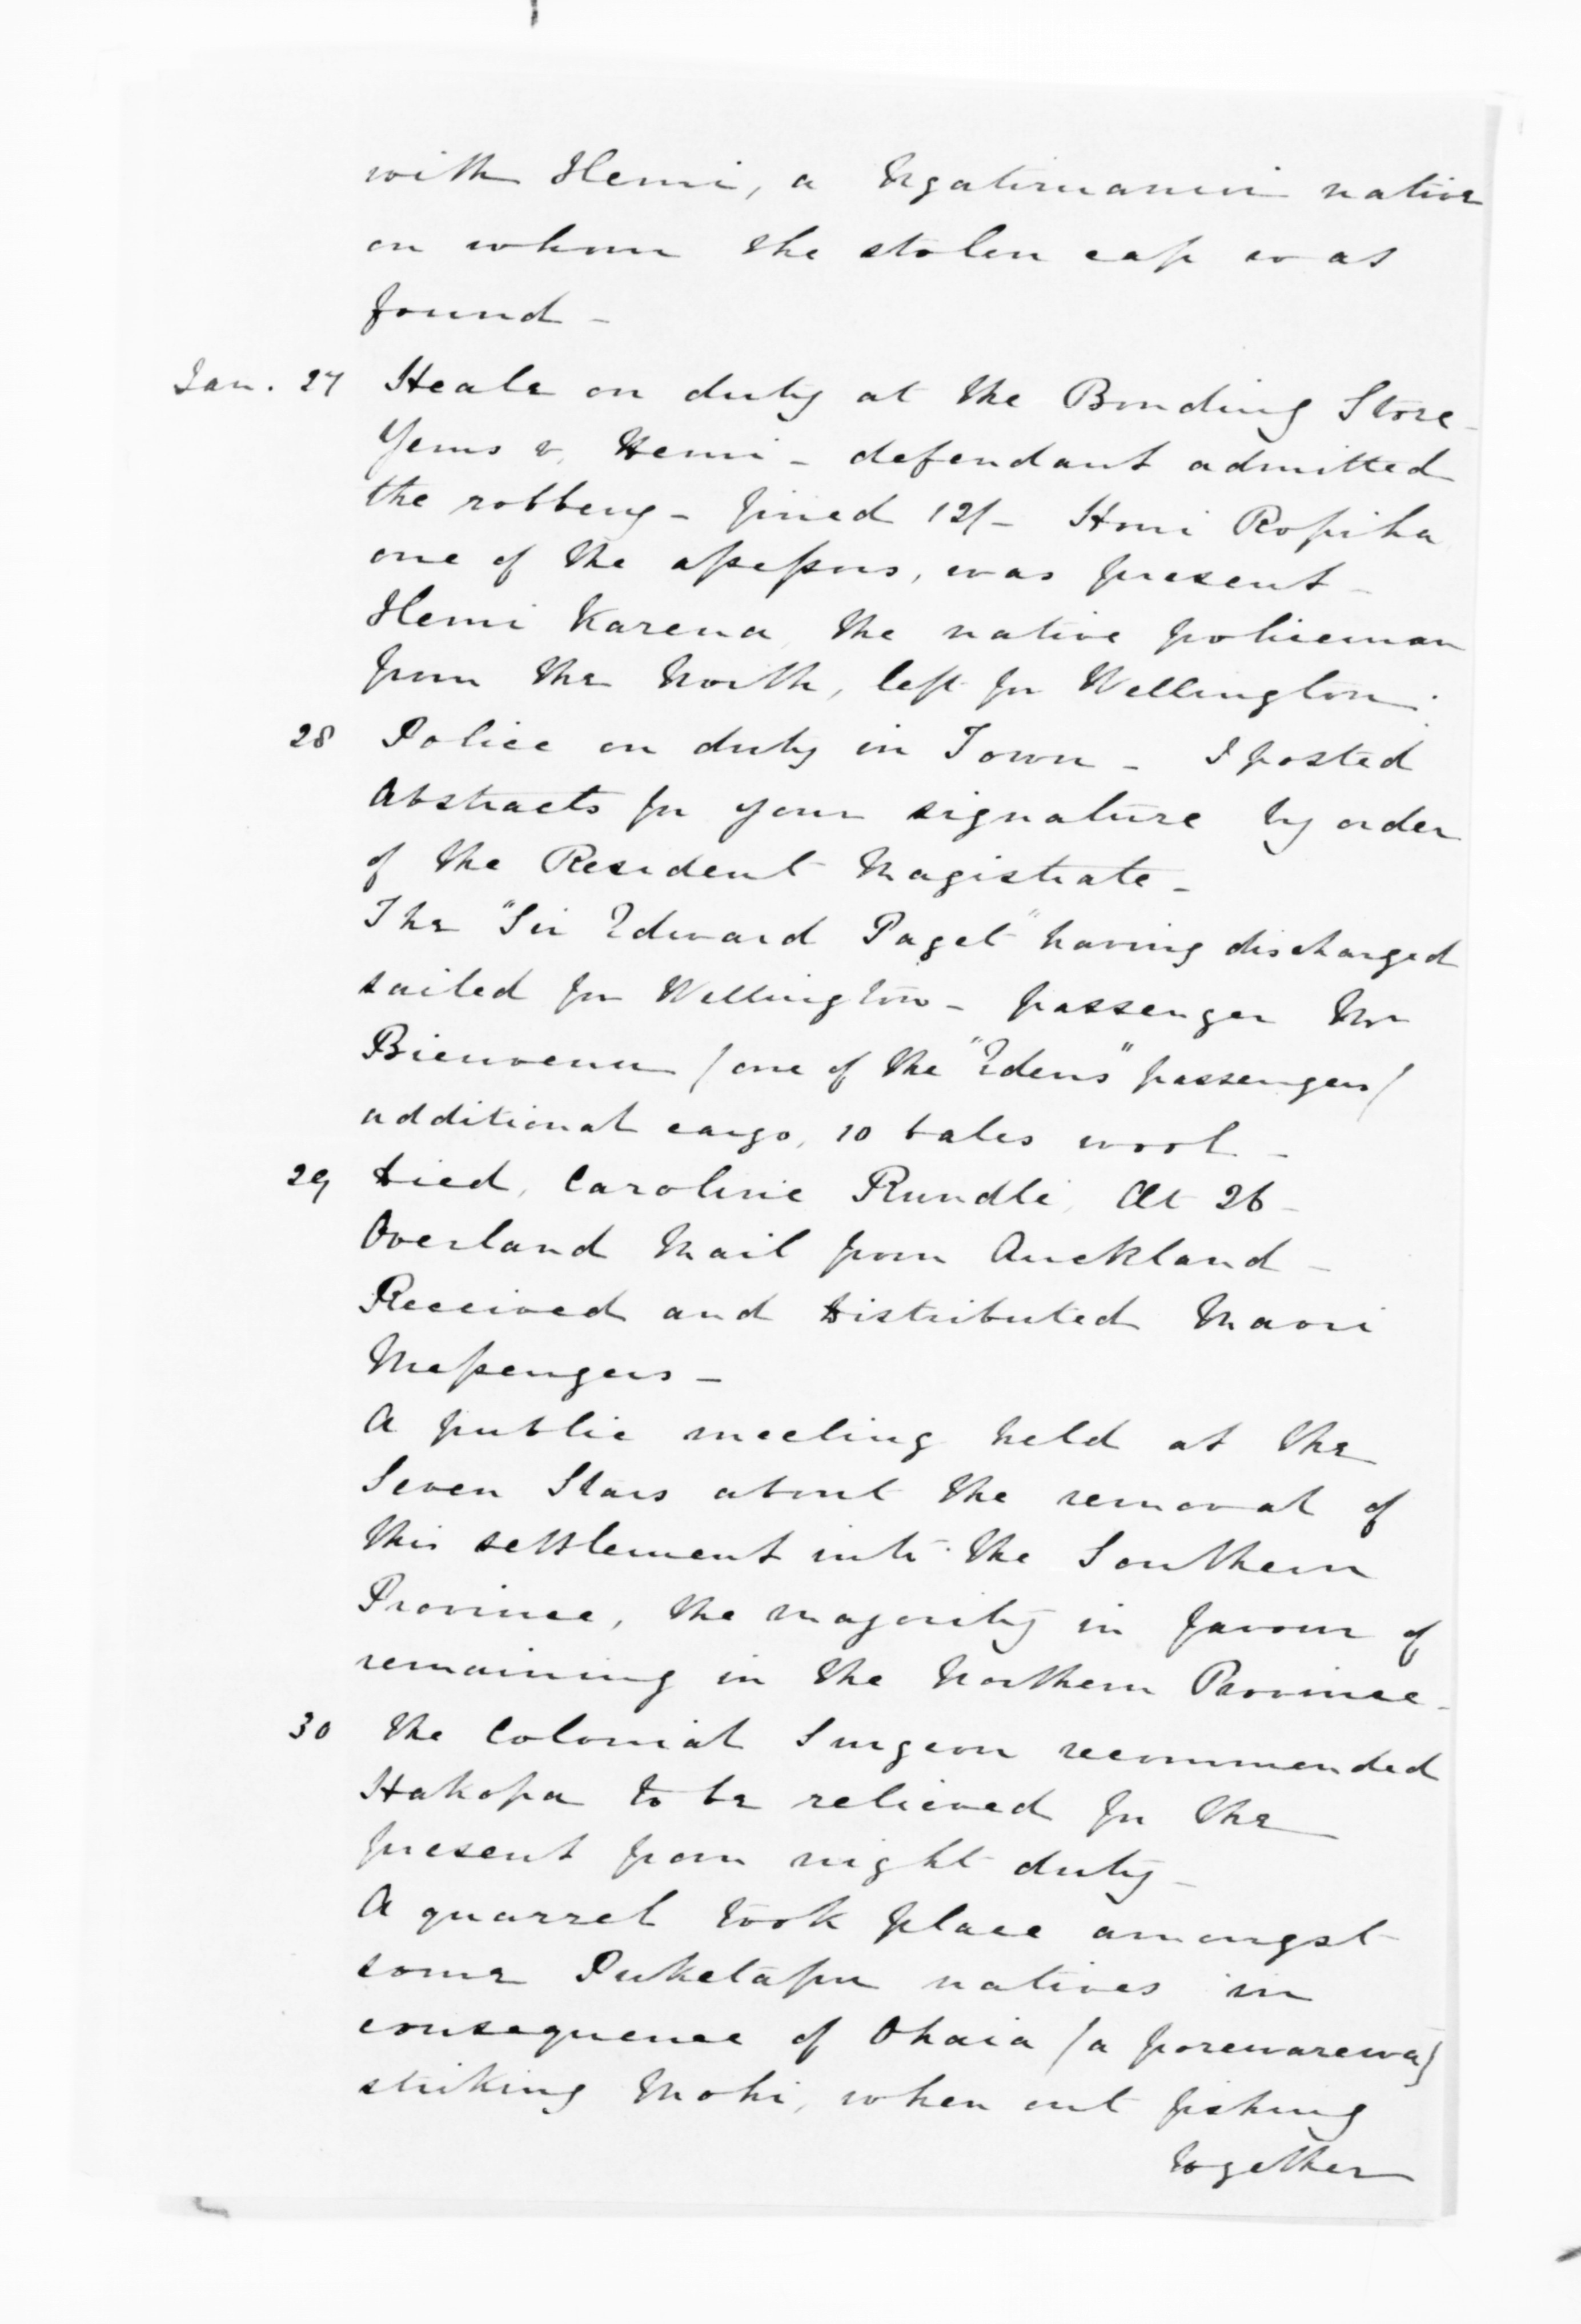 with Hemi, a Ngatiruanui native
on whom the stolen cap was
found -
Jan. 27 Heale on duty at the Bonding Store -
Yems v. Hemi - defendant admitted
the robbery - fined 12/- Honi Ropiha
one of the assessors, was present -
Hemi Karena, the native policeman
from the North, left for Wellington.
28 Police on duty in Town - I posted
Abstracts for your signature by order
of the Resident Magistrate -
The "Sir Edward Paget" having discharged
sailed for Wellington - passenger Mr
Bienvenu / one of the "Edens" passengers /
additional cargo, 10 bales wool -
29 Died, Caroline Rundle, Æt 26 -
Overland Mail from Auckland -
Received and Distributed Maori
Messengers -
A public meeting held at the
Seven Stars about the removal of
this settlement into the Southern
Province, the majority in favour of
remaining in the Northern Province -
30 The Colonial Surgeon recommended
Hakopa to be relieved for the
present from night duty -
A quarrel took place amongst
some Puketapu natives in
consequence of Ohaia (a porewarewa)
striking Mohi, when out fishing
together